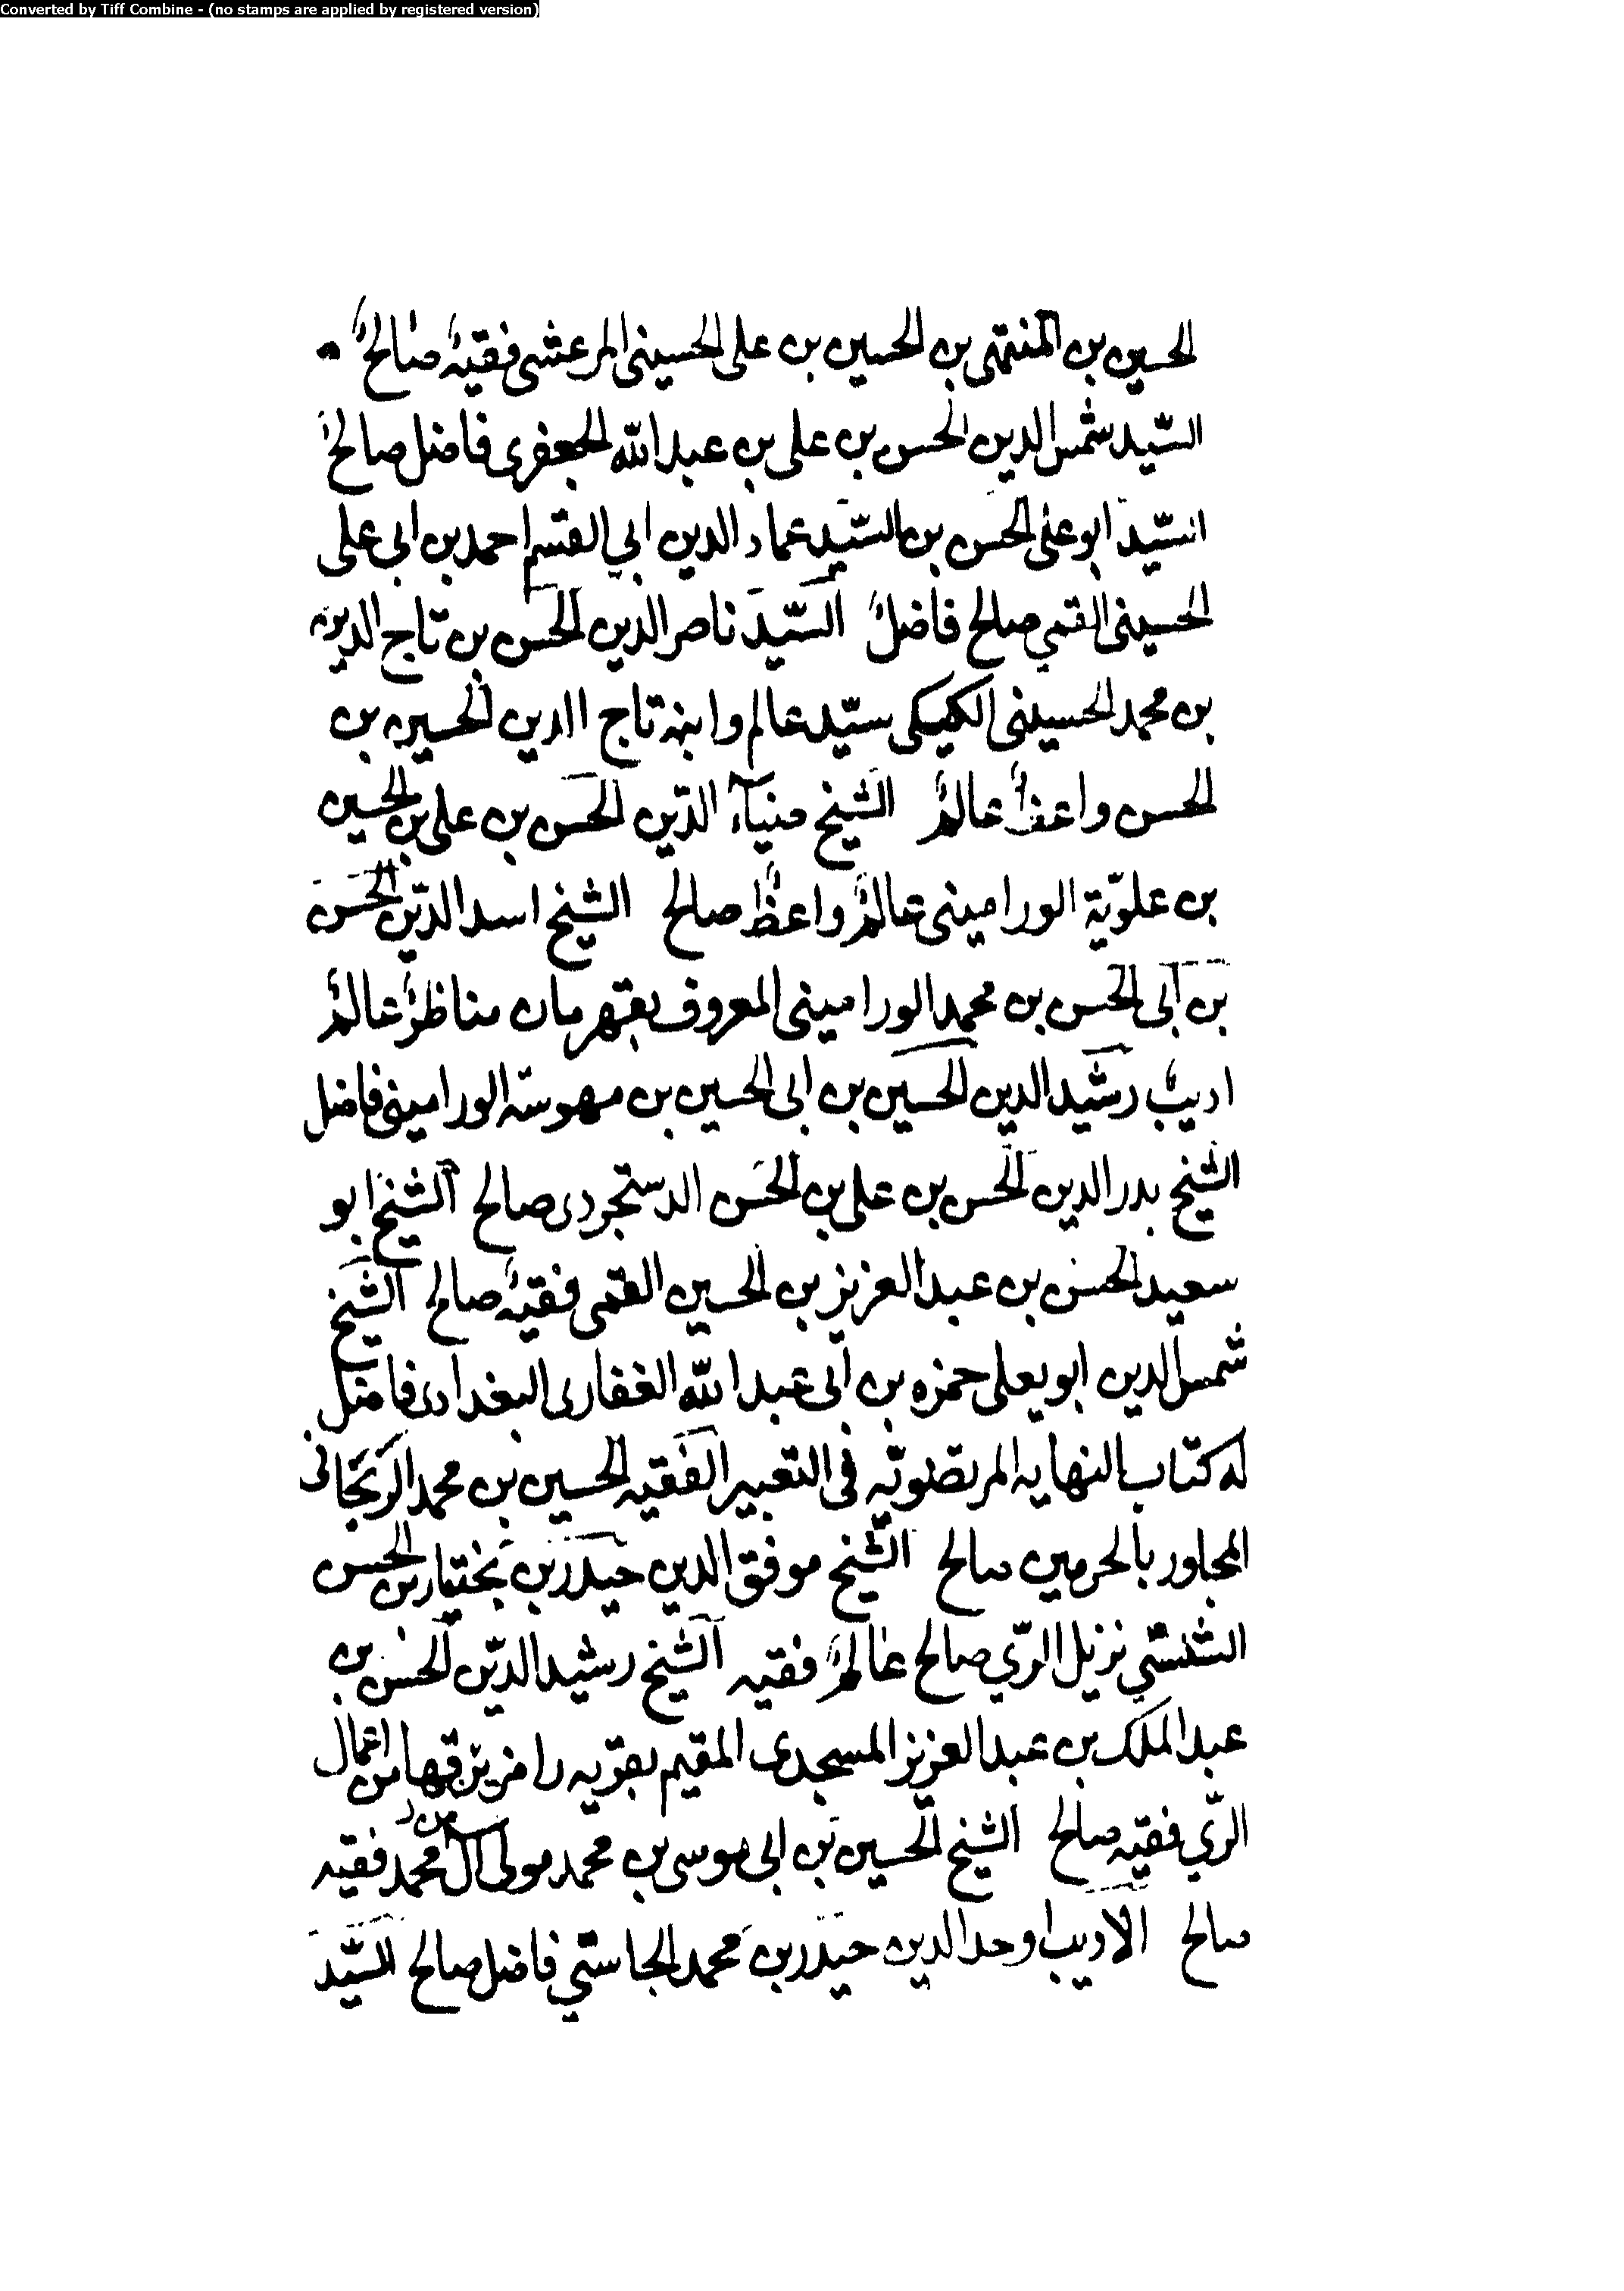 Converted by Tiff Combine - (no stamps are applied by registered version)
الحسين بن المنتهى بن الحسين بن على الحسينى المرعشى فقيهٌ صالحٌ
السّيد شمس الدين الحسن بن على بن عبد الله الجعفرى فاضل صالحٌ
السّيد ابو على الحسن بن السّيد عماد الدين ابي القسم احمد بن ابى على
الحسينى القمي صالح فاضلٌ السّيد ناصر الدين الحسن بن تاج الدين
بن محمد الحسينى الكيكى سيّد عالم وابنه تاج الدين الحسين بن
الحسن واعظٌ عالمٌ الشيخ ضياء الدّين الحسن بن على بن الحسين
بن علويّة الورامينى عالمٌ واعظٌ صالح الشيخ اسد الدّين الحسن
بن ابى الحسن بن محمد الورامينى المعروف بقهرمان مناظرٌ عالمٌ
اديبٌ رشيد الدين الحسين بن ابى الحسين بن مهوسه الورامينى فاضل
الشيخ بدر الدين الحسن بن على بن الحسن الدستجردى صالح الشيخ ابو
سعيد الحسن بن عبد العزيز بن الحسين القمى فقيهٌ صالح الشيخ
شمس الدين ابو يعلى حمزه بن ابى عبد الله الغفارى البغدادى فاضل
له كتاب النهايه المرتضويّه فى التعبير الفقيه الحسين بن محمد الريحانى
المجاور بالحرمين صالح الشيخ موفق الدين حيدر بن بختيار بن الحسن
الشنشي نزيل الرّي صالح عالمٌ فقيه الشيخ رشيد الدّين الحسن بن
عبد الملك بن عبد العزيز المسجدى المقيم بقريه رامرين قها من اعمال
الرّي فقيه صالح الشيخ الحسين بن ابى موسى بن محمد مولى آل محمد فقيه
صالح الاديب اوحد الدين حيدر بن محمد الجاستي فاضل صالح السّيد